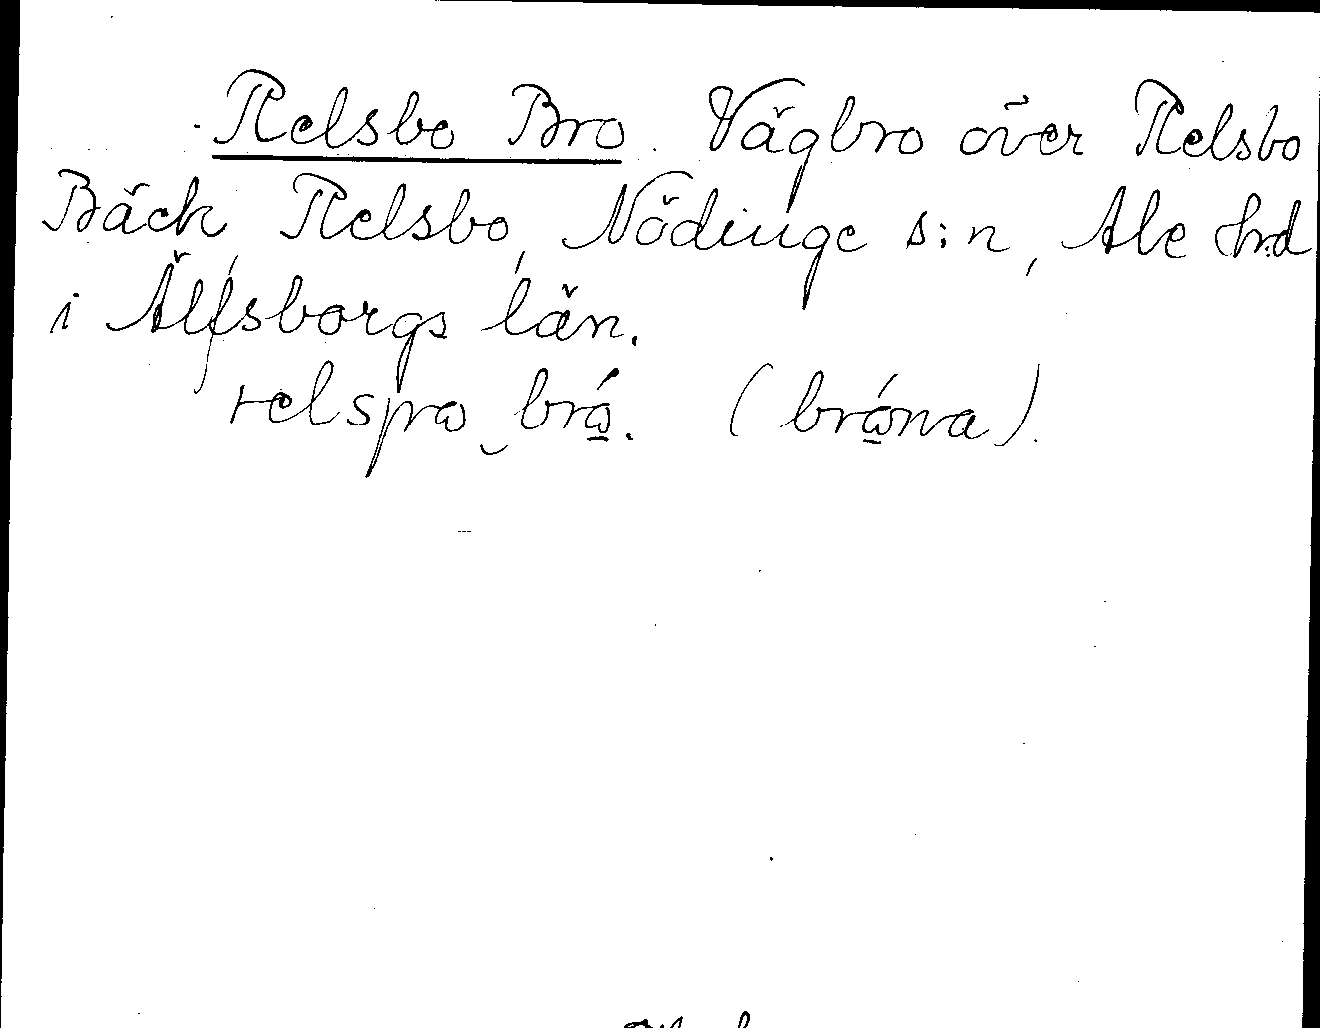 Relsbo Bro. Vägbro över Relsbo
Bäck, Relsbo, Nödinge s:n, Ale hrd
i Älfsborgs län.
relspω‿brώ. (brώna).